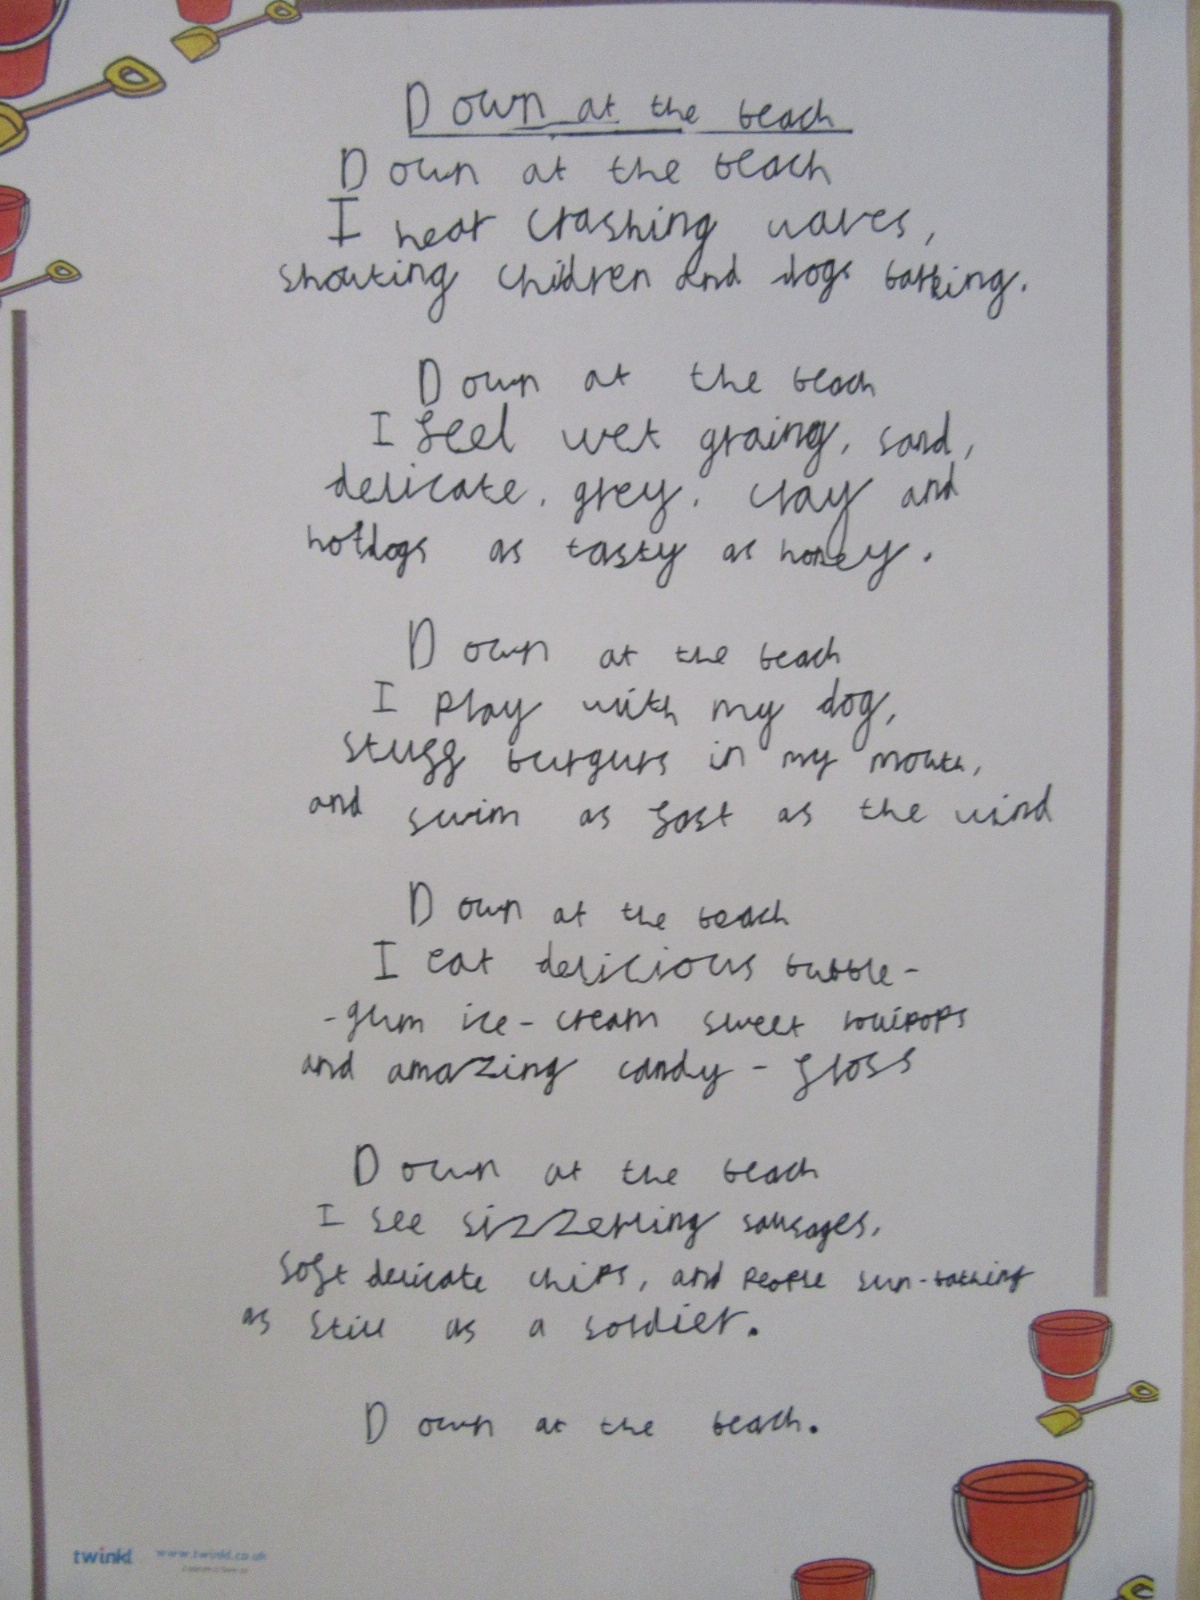 Down at the beach
Down at the beach
I hear crashing waves,
shouting children and dogs barking.
Down at the beach
I feel wet graing, sand,
delicate, grey, clay and
hotdogs as tasty as honey.
Down at the beach
I play with my dog,
stuff burgurs in my mouth,
and swim as fast as the wind
Down at the beach
I eat delicious bubble-
-gum ice-cream sweet lollipops
and amazing candy-floss
Down at the beach
I see sizzerling sausages,
soft delicate chips, and people sun-bathing
as still as a soldier.
Down at the beach.
twinkl www.twinkl.co.uk